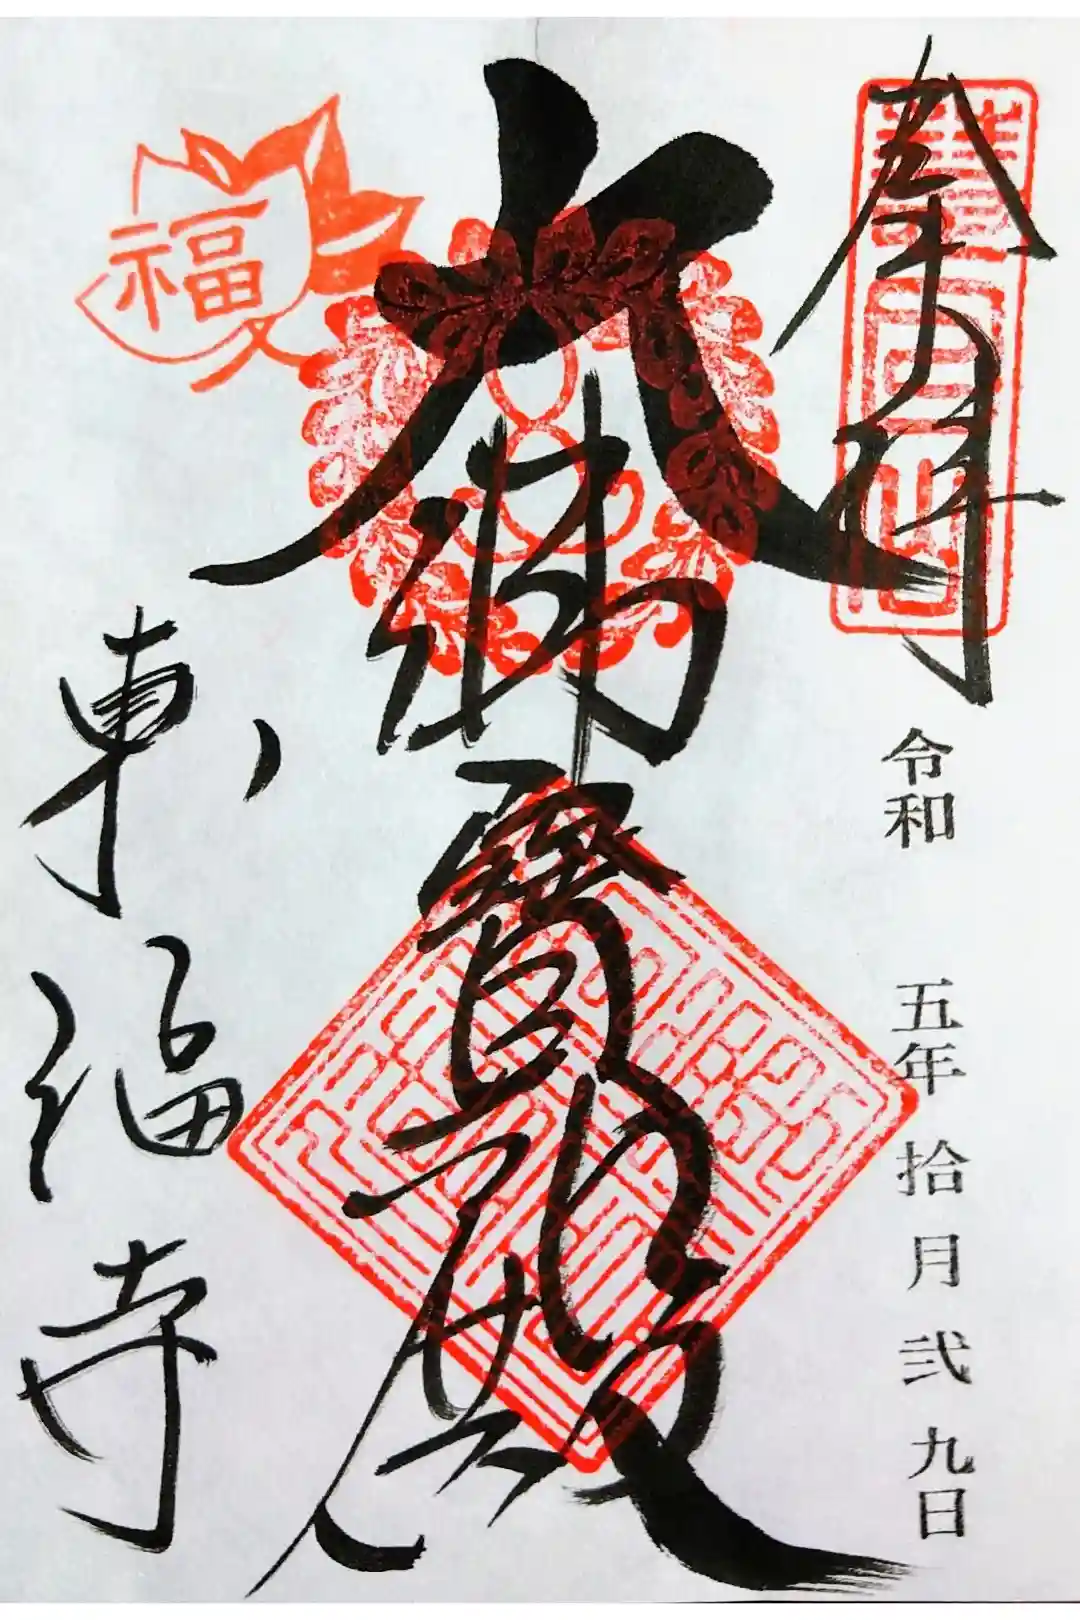 奉拝
令和 五年 拾月 弐九日
大佛寶殿
東福寺
福